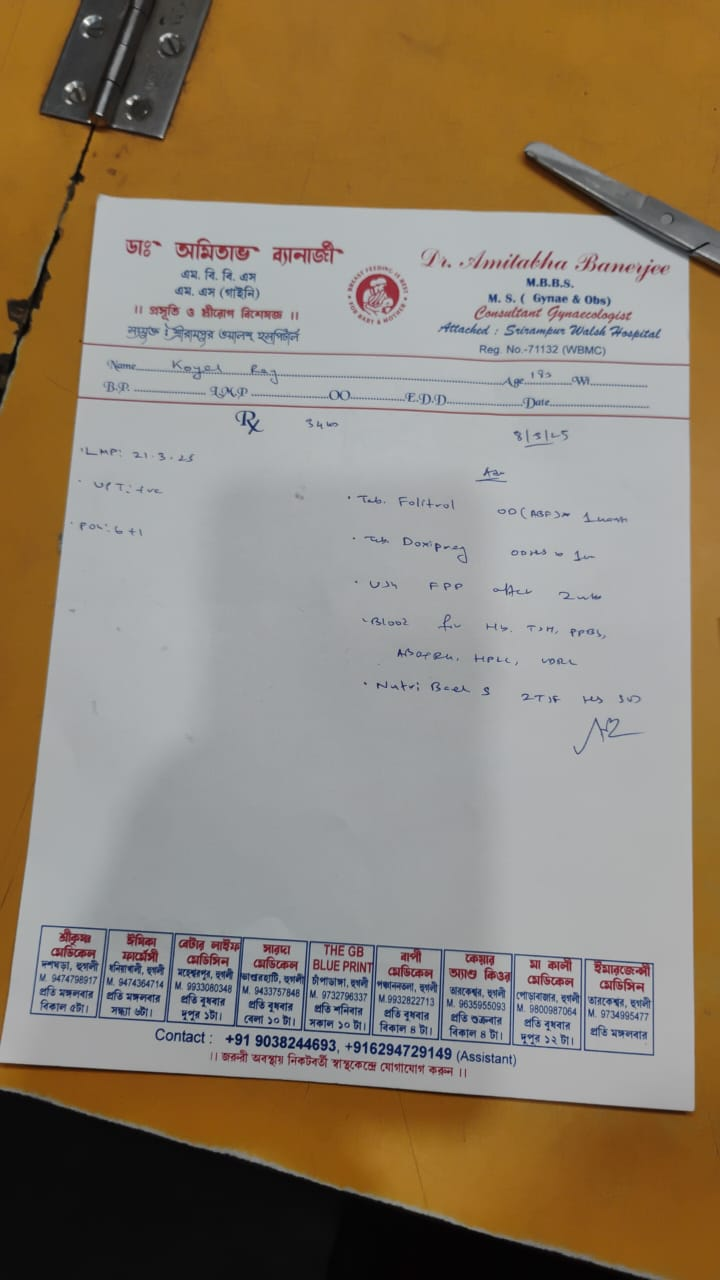 ডাঃ অমিতাভ ব্যানার্জী
এম. বি. বি. এস
এম. এস (গাইনি)
।। প্রসূতি ও স্ত্রীরোগ বিশেষজ্ঞ ।।
সংযুক্ত : শ্রীরামপুর ওয়ালস হসপিটাল
BREAST FEEDING IS BEST
FOR BABY & MOTHER
Dr. Amitabha Banerjee
M.B.B.S.
M. S. ( Gynae & Obs)
Consultant Gynaecologist
Attached : Srirampur Walsh Hospital
Reg. No.-71132 (WBMC)
Name Koyel Age 18 Wt
B.P. L.M.P OO E.D.D Date
Rx
LMP: 21.3.25
UPT: +ve
POG: 6+1
Tab. Folitrol OD
Tab. Doxipreg
USG FPP after 2wks
Blood for Hb, TSH, PPBS,
HPLC, VDRL
শ্রীকৃষ্ণ মেডিকেল
দশঘড়া, হুগলী
M. 9474798917
প্রতি মঙ্গলবার
বিকাল ৫টা।
ঈমিকা ফার্মেসী
ধনিয়াখালী, হুগলী
M. 9474364714
প্রতি মঙ্গলবার
সন্ধ্যা ৬টা।
বেটার লাইফ মেডিসিন
মহেশ্বরপুর, হুগলী
M. 9933080348
প্রতি বুধবার
দুপুর ১টা।
সারদা মেডিকেল
হুগলী
M. 9433757848
প্রতি বুধবার
বেলা ১০ টা।
THE GB
BLUE PRINT
চাঁপাডাঙ্গা, হুগলী
M. 9732796337
প্রতি শনিবার
সকাল ১০ টা।
বাপী মেডিকেল
হুগলী
M.9932822713
প্রতি বুধবার
বিকাল ৪ টা।
কেয়ার অ্যাণ্ড কিওর
তারকেশ্বর, হুগলী
M. 9635955093
প্রতি শুক্রবার
বিকাল ৪ টা।
মা কালী মেডিকেল
পোড়াবাজার, হুগলী
M. 9800987064
প্রতি বুধবার
দুপুর ১২ টা।
ইমারজেন্সী মেডিসিন
তারকেশ্বর, হুগলী
M. 9734995477
প্রতি মঙ্গলবার
Contact : +91 9038244693, +916294729149 (Assistant)
।। জরুরী অবস্থায় নিকটবর্তী স্বাস্থ্যকেন্দ্রে যোগাযোগ করুন ।।